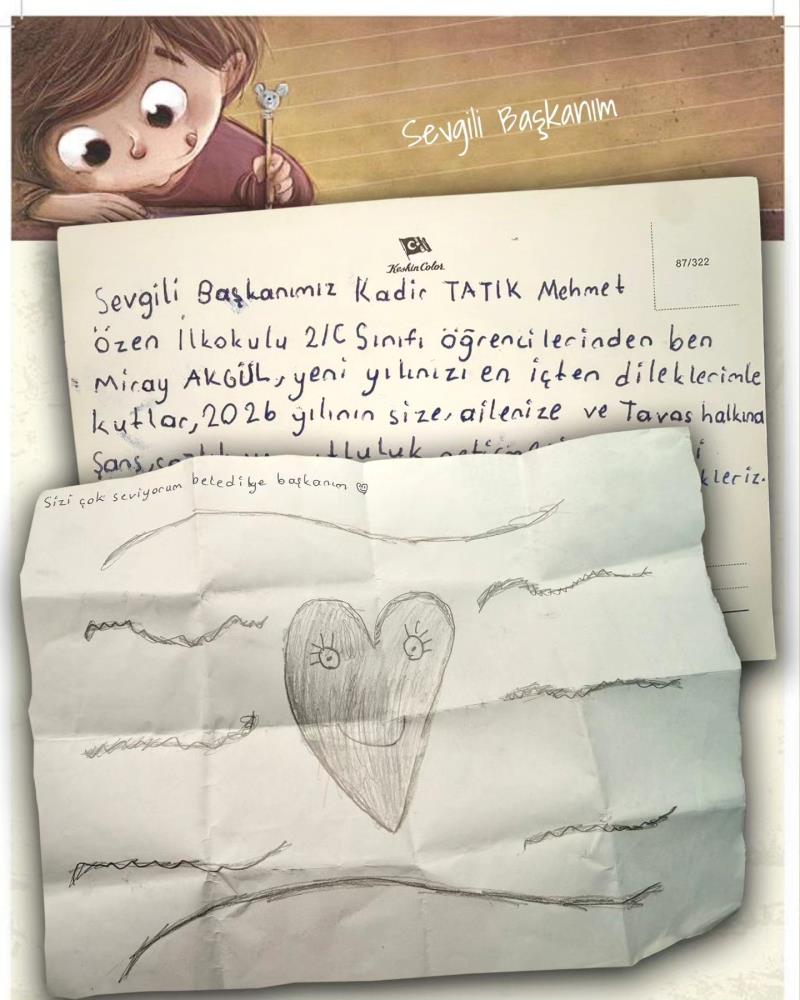 Sevgili Başkanım
KeskinColor
87/322
Sevgili Başkanımız Kadir TATIK Mehmet
Özen İlkokulu 2/C Sınıfı öğrencilerinden ben
Miray AKGÜL, yeni yılınızı en içten dileklerimle
kutlar, 2026 yılının size, ailenize ve Tavas halkına
şans,
kleriz.
Sizi çok seviyorum beledilye başkanım